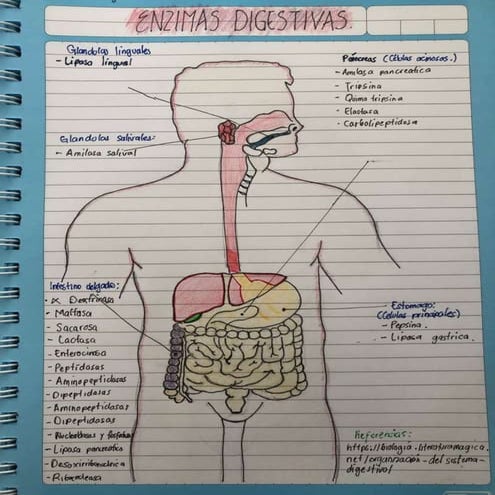 ENZIMAS DIGESTIVAS.
Glandolas linguales
- Lipasa lingual
Páncreas (Células acinosas.)
- Amilasa pancreatica
- Tripsina
- Quimo tripsina
- Elastasa
- Carbolipeptidosa
Glandolas salivales:
- Amilasa salival
Intestino delgado:
- ∝ Dextrinasa
- Maltasa
- Sacarosa
- Lactasa
- Enterocinasa
- Peptidasas
- Aminopeptidasas
- Dipeptidasas
- Aminopeptidasas
- Dipeptidasas
- Nucleotidasas y fosfatasas
- Lipasa pancreatica
- Desoxirribonucleica
- Ribonucleasa
Estomago:
(Células principales)
- Pepsina.
- Lipasa gastrica.
Referencias:
https://biologia.literaturamagica.
net/organización-del-sistema-
digestivo/